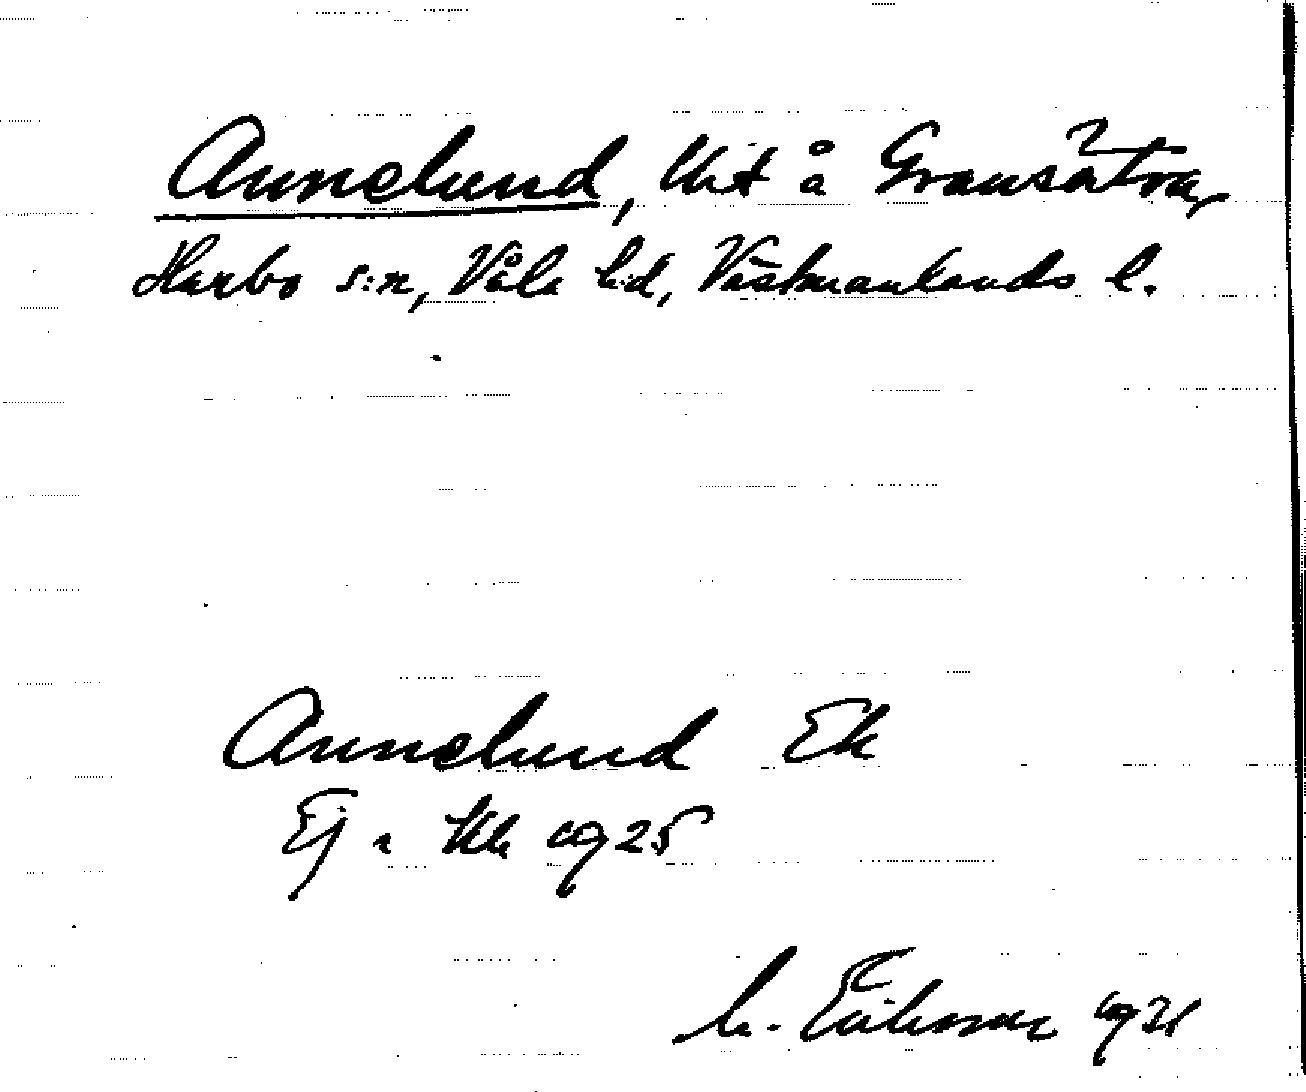 Annelund, Uit å Gransätra,
Harbo s:n, Våla hd, Västmanlands l.
Annelund Ek
Ej i Uk 1925
Eriksson